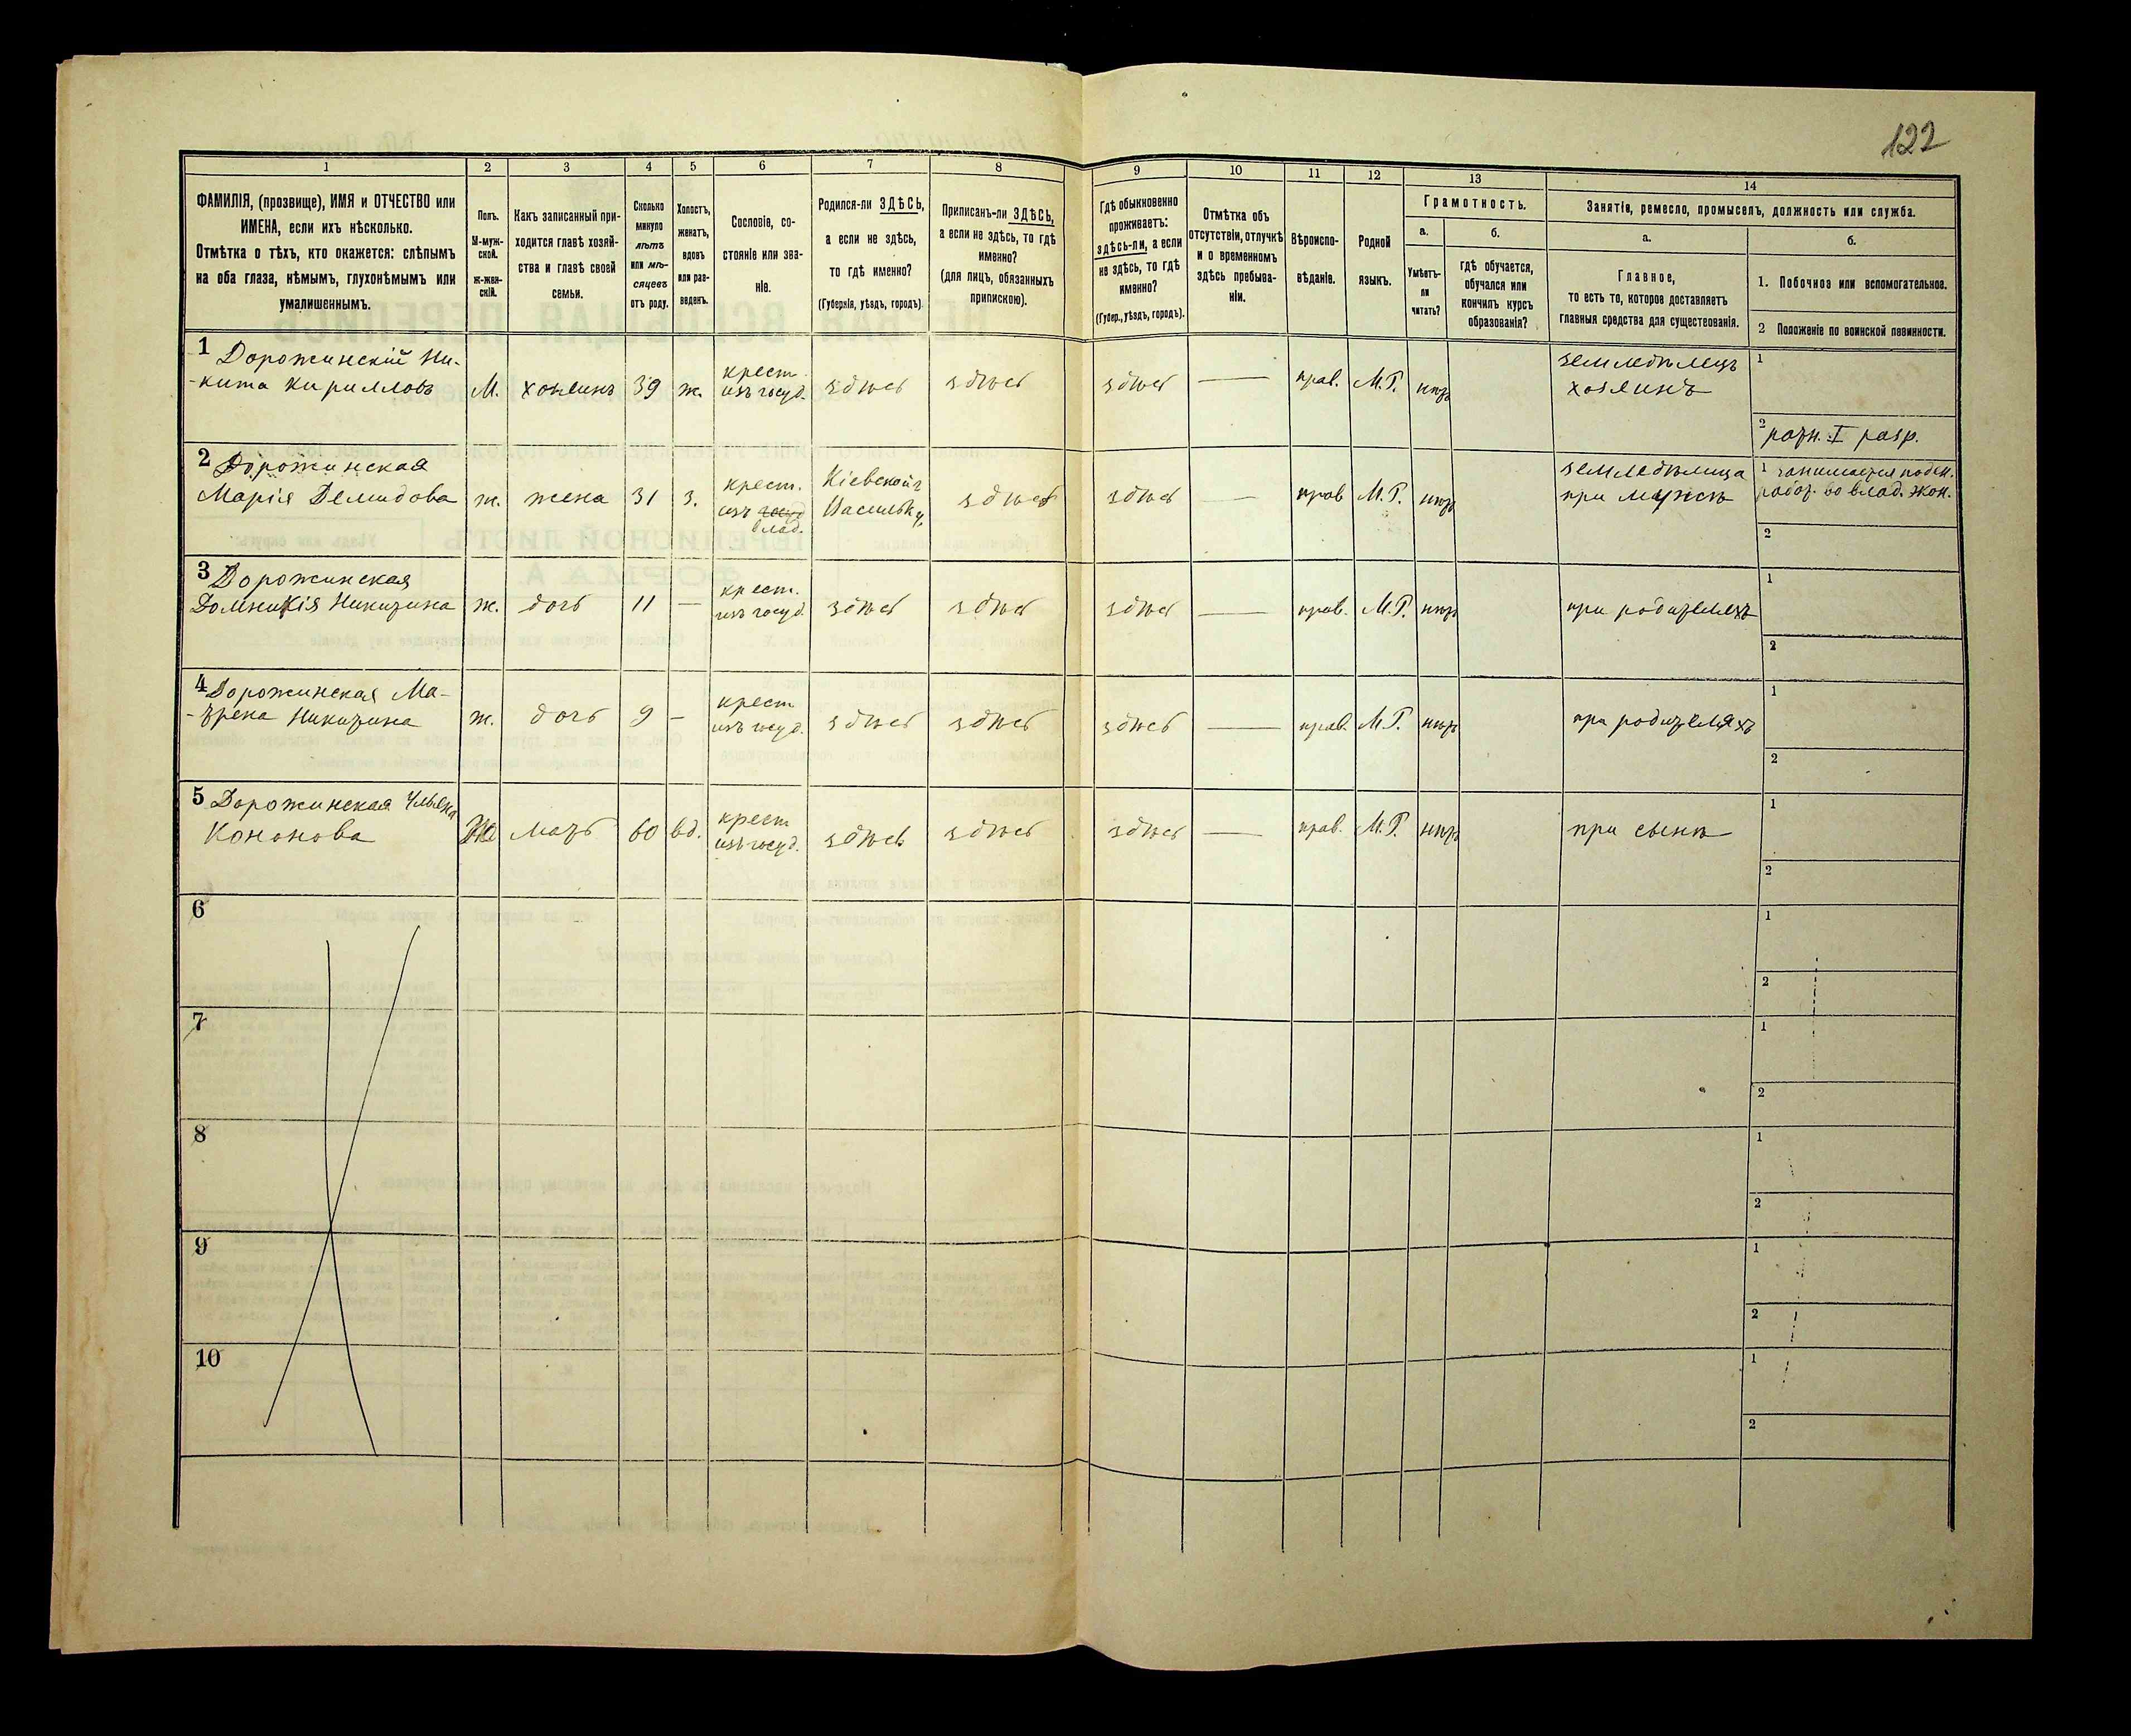 122
1
2
3
4
5
6
7
8
9
10
11
12
13
14
ФАМИЛІЯ, (прозвище), ИМЯ и ОТЧЕСТВО или
ИМЕНА, если ихъ нѣсколько.
Отмѣтка о тѣхъ, кто окажется: слѣпымъ
на оба глаза, нѣмымъ, глухонѣмымъ или
умалишеннымъ.
Полъ.
М-муж-
ской.
ж-жен-
скій.
Какъ записанный при-
ходится главѣ хозяй-
ства и главѣ своей
семьи.
Сколько
минуло
лѣтъ
или мѣ-
сяцевъ
отъ роду.
Холостъ,
женатъ,
вдовъ
или раз-
веденъ.
Сословіе, со-
стояніе или зва-
ніе.
Родился-ли ЗДѢСЬ,
а если не здѣсь,
то гдѣ именно?
(Губернія, уѣздъ, городъ)
Приписанъ-ли ЗДѢСЬ,
а если не здѣсь, то гдѣ
именно?
(для лицъ, обязанныхъ
припискою).
Гдѣ обыкновенно
проживаетъ:
здѣсь-ли, а если
не здѣсь, то гдѣ
именно?
(Губер., уѣздъ, городъ).
Отмѣтка объ
отсутствіи, отлучкѣ
и о временномъ
здѣсь пребыва-
ніи.
Вѣроиспо-
вѣданіе.
Родной
языкъ.
Грамотность.
а.
Умѣетъ-
ли
читать?
б.
гдѣ обучается,
обучался или
кончилъ курсъ
образованія?
Занятіе, ремесло, промыселъ, должность или служба.
а.
Главное,
то есть то, которое доставляетъ
главныя средства для существованія.
б.
1. Побочное или вспомогательное.
2 Положеніе по воинской повинности.
1 Дорожинскій Ни-
-кита Кирилловъ
М.
хозяинъ
39
ж.
крест.
изъ госуд.
здѣсь
здѣсь
здѣсь
—
прав.
М.Р.
нѣтъ
земледѣлецъ
хозяинъ
1
2 ратн. I разр.
2 Дорожинская
Марія Демидова
ж.
жена
31
з.
крест.
изъ госуд
влад.
Кіевской г
Васильк у.
здѣсь
здѣсь
—
прав
М.Р.
нѣтъ
земледѣлица
при мужѣ
1 занимается поден.
работ. во влад. экон.
2
3 Дорожинская
Домникія Никитина
ж.
дочь
11
—
крест.
изъ госуд.
здѣсь
здѣсь
здѣсь
—
прав.
М.Р.
нѣтъ
при родителяхъ
1
2
4 Дорожинская Ма-
-трена Никитина
ж.
дочь
9
—
крест
изъ госуд.
здѣсь
здѣсь
здѣсь
—
прав.
М.Р.
нѣтъ
при родителяхъ
1
2
5 Дорожинская Ульяна
Кононова
Ж
мать
60
вд.
крест
изъ госуд.
здѣсь
здѣсь
здѣсь
—
прав.
М.Р.
нѣтъ
при сынѣ
1
2
6
1
2
7
1
2
8
1
2
9
1
2
10
1
2